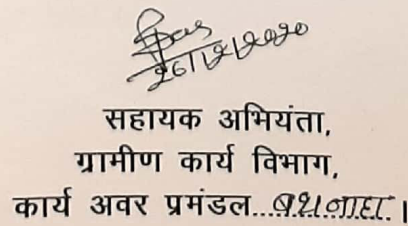 26/12/2020
सहायक अभियंता,
ग्रामीण कार्य विभाग,
कार्य अवर प्रमंडल....बथनाहा.. ।